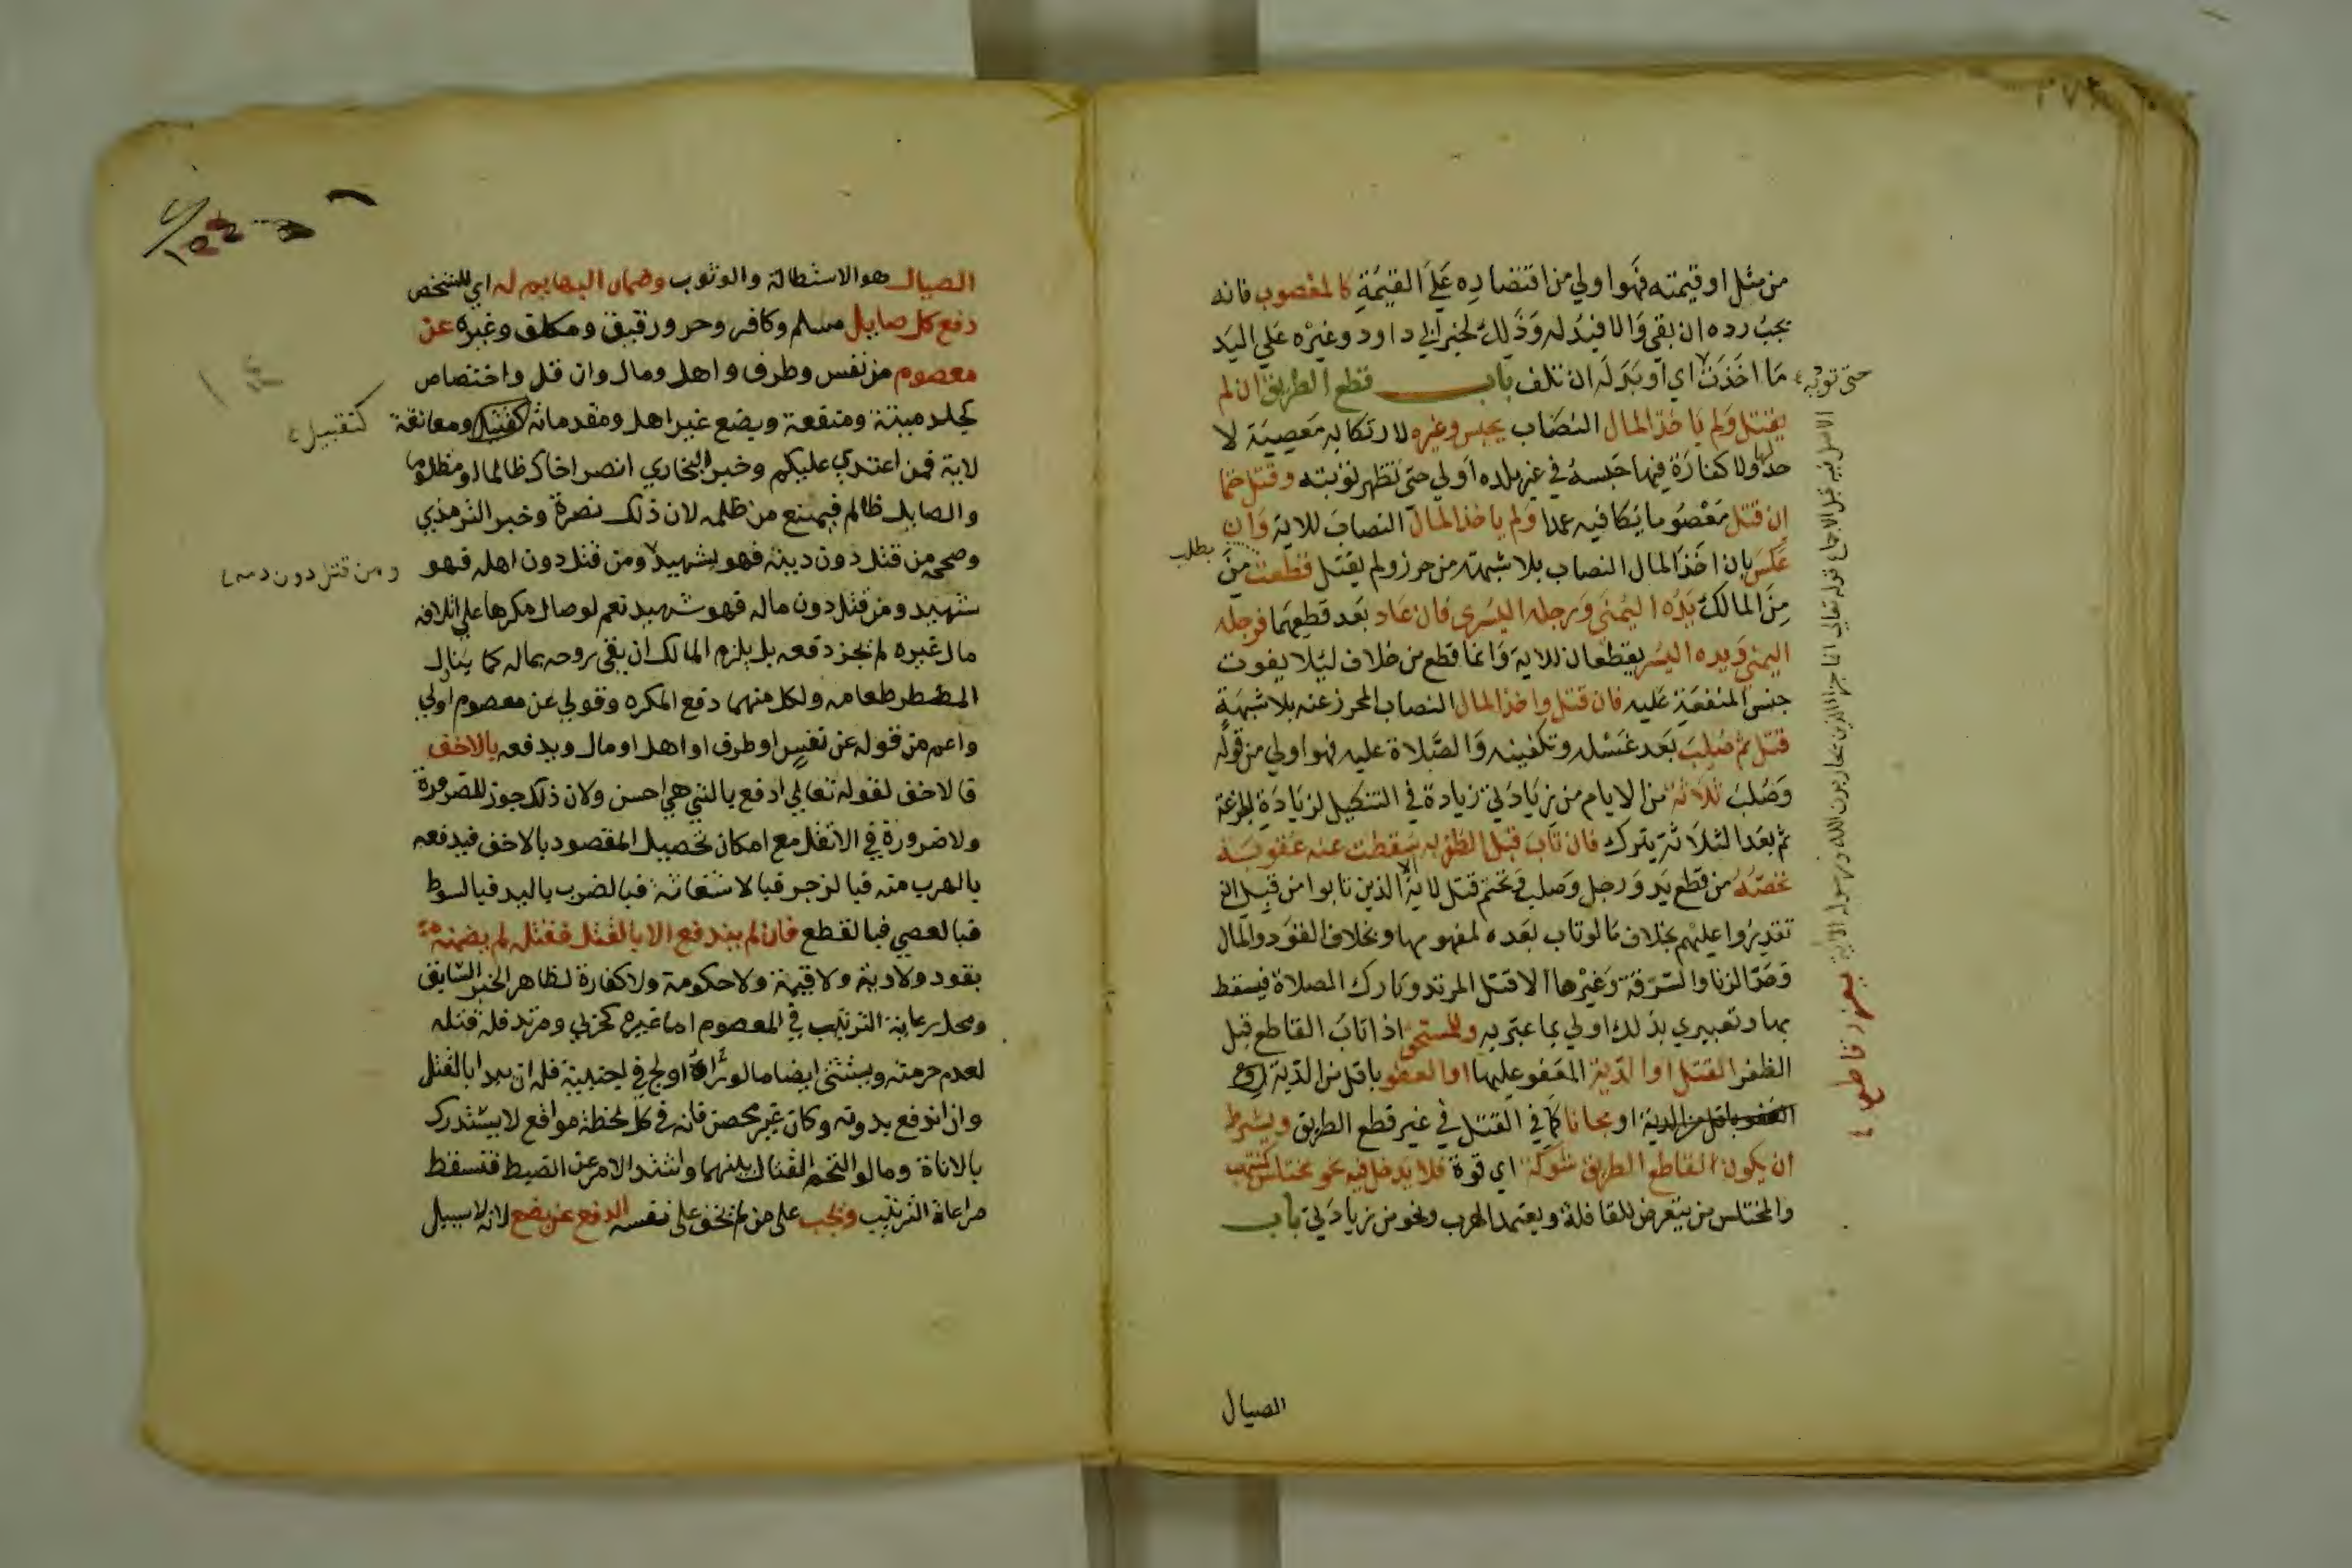 من مثل او قيمته فهو اولي من اقتصاره علي القيمة كالمغصوب فانه
يجب رده ان بقي والا فبدله وذلك لخبر ابي داود وغيره علي اليد
ما اخذت اي او بدله ان تلف باب قطع الطريق ان لم
حتي توديه
يقتل ولم ياخذ المال النصاب يحبس وغيره لارتكابه معصية لا
حد لها ولا كفارة فيها حبسه في غير بلده اولي حتي تظهر توبته وقتل حتما
ان قتل معصوما يكافيه عمدا ولم ياخذ المال النصاب للاية وان
عكس بان اخذ المال النصاب بلا شبهة من حرز ولم يقتل قطعت من
بطلب
من المالك يده اليمني ورجله اليسري فان عاد بعد قطعهما فرجله
اليمني ويده اليسر يقطعان للاية وانما قطع من خلاف ليلا يفوت
جنس المنفعة عليه فان قتل واخذ المال النصاب المحرز عنه بلا شبهة
قتل ثم صلب بعد غسله وتكفينه والصلاة عليه فهو اولي من قوله
وصلب ثلاثة من الايام من زيادتي زيادة في التنكيل لزيادة الجرعة
ثم بعد الثلاثة يترك فان تاب قبل الظفر به سقطت عنه عقوبة
تخصه من قطع يد ورجل وصلب وتحتم قتل لاية الا الذين تابوا من قبل ان
تقدروا عليهم بخلاف ما لو تاب بعده لمفهومها وبخلاف القود والمال
وحد الزنا والسرقة وغيرها الا قتل المرتد وتارك الصلاة فيسقط
بها وتعبيري بذلك اولي بما عبر به وللمستحق اذا تاب القاطع قبل
الظفر القتل او الدية المعفو عليها او العفو باقل من الدية
العفو باقل من الدية او مجانا كما في القتل في غير قطع الطريق ويشترط
ان يكون القاطع الطريق شوكة اي قوة فلا يدخل فيه نحو مختلس كمنتهب
والمختلس من يتعرض للقافلة ويعتمد الهرب ونحو من زيادتي باب
الاصل فيه قبل الاجماع قوله تعالي انما جزاء الذين يحاربون الله ورسوله الاية
الصيال
الصيال هو الاستطالة والوثوب وضمان البهايم له اي للشخص
دفع كل صايل مسلم وكافر وحر ورقيق ومكلف وغيره عن
معصوم من نفس وطرف واهل ومال وان قل واختصاص
كجلد ميتة ومنفعة وبضع غير اهل ومقدماته كقبل ومعانقة
كتقبيل
لاية فمن اعتدي عليكم وخبر البخاري انصر اخاك ظالما او مظلوما
والصايل ظالم فيمنع من ظلمه لان ذلك نصرة وخبر الترمذي
وصححه من قتل دون دينه فهو شهيد ومن قتل دون اهله فهو
ومن قتل دون دمه
شهيد ومن قتل دون ماله فهو شهيد نعم لو صال مكرها علي اتلاف
مال غيره لم يجز دفعه بل يلزم المالك ان يقي روحه بماله كما يناول
المضطر طعامه ولكل منهما دفع المكره وقولي عن معصوم اولي
واعم من قوله عن نفس او طرف او اهل او مال ويدفعه بالاخف
فالاخف لقوله تعالي ادفع بالتي هي احسن ولان ذلك جوز للضرورة
ولا ضرورة في الاثقل مع امكان تحصيل المقصود بالاخف فيدفعه
بالهرب منه فبالزجر فبالاستغاثة فبالضرب باليد فبالسوط
فبالعصي فبالقطع فان لم يندفع الا بالقتل فقتله لم يضمنه
بقود ولا دية ولا قيمة ولا حكومة ولا كفارة لظاهر الخبر السابق
ومحل رعاية الترتيب في المعصوم اما غيره كحربي ومرتد فله قتله
لعدم حرمته ويستثني ايضا ما لو راه اولج في اجنبية فله ان يبدا بالقتل
وان اندفع بدونه وكان غير محصن فانه في كل لحظة مواقع لا يستدرك
بالاناة وما لو التحم القتال بينهما واشتد الامر عن الضبط فتسقط
مراعاة الترتيب ويجب علي من لم يخف علي نفسه الدفع عن بضع لانه لا سبيل